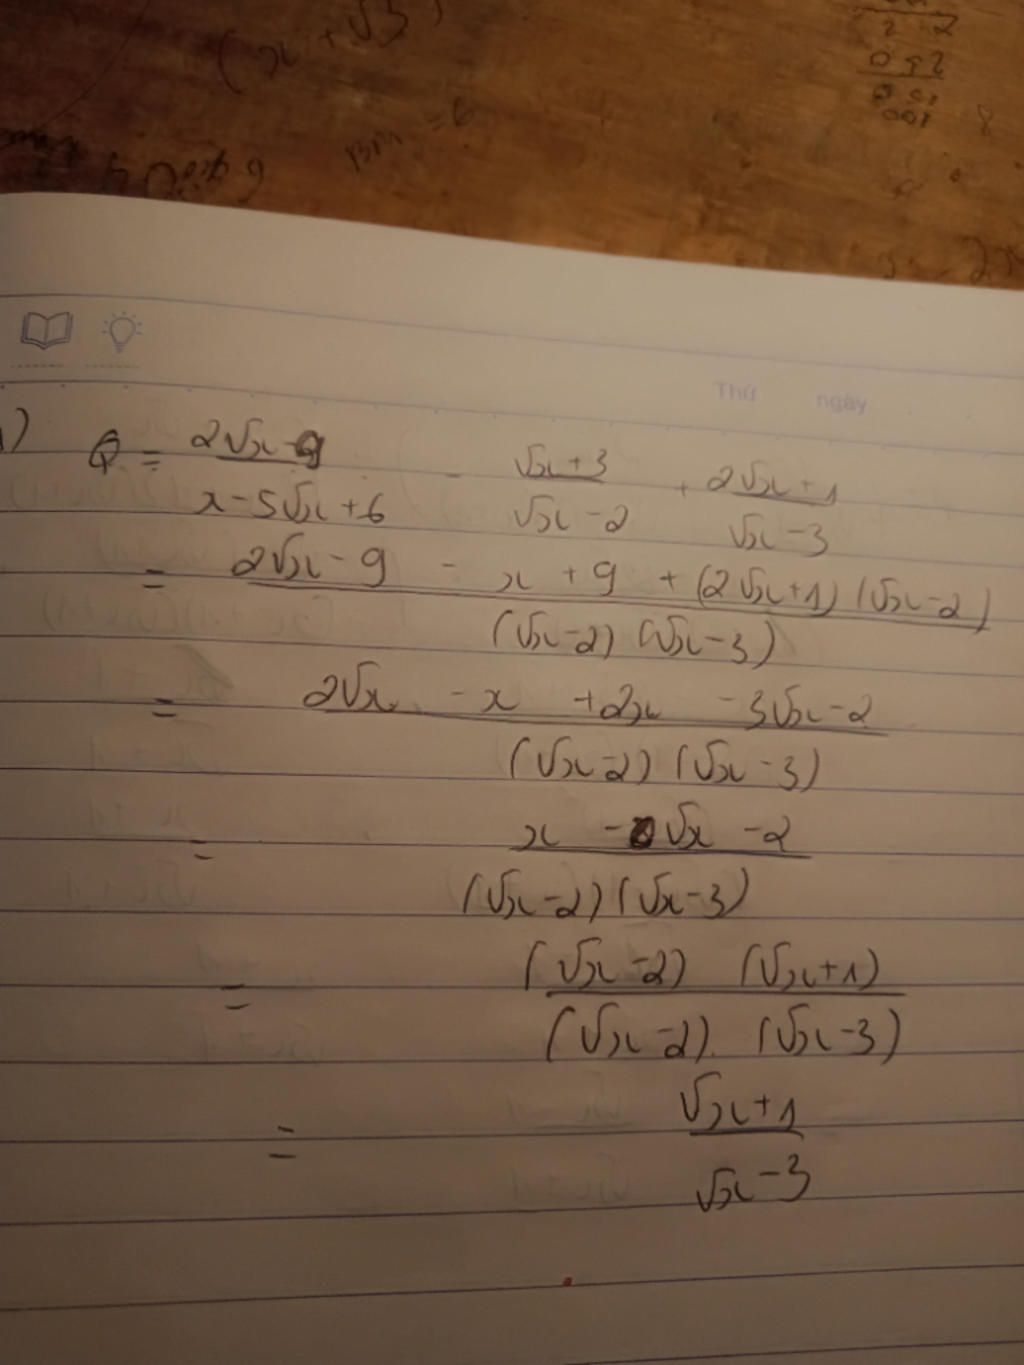 (x + √3)
BM = 6
Thứ ngày
) Q = (2√x - 9)/(x - 5√x + 6) - (√x + 3)/(√x - 2) + (2√x + 1)/(√x - 3)
= (2√x - 9 - x + 9 + (2√x + 1)(√x - 2))/((√x - 2)(√x - 3))
= (2√x - x + 2x - 3√x - 2)/((√x - 2)(√x - 3))
= (x - √x - 2)/((√x - 2)(√x - 3))
= ((√x - 2)(√x + 1))/((√x - 2).(√x - 3))
= (√x + 1)/(√x - 3)